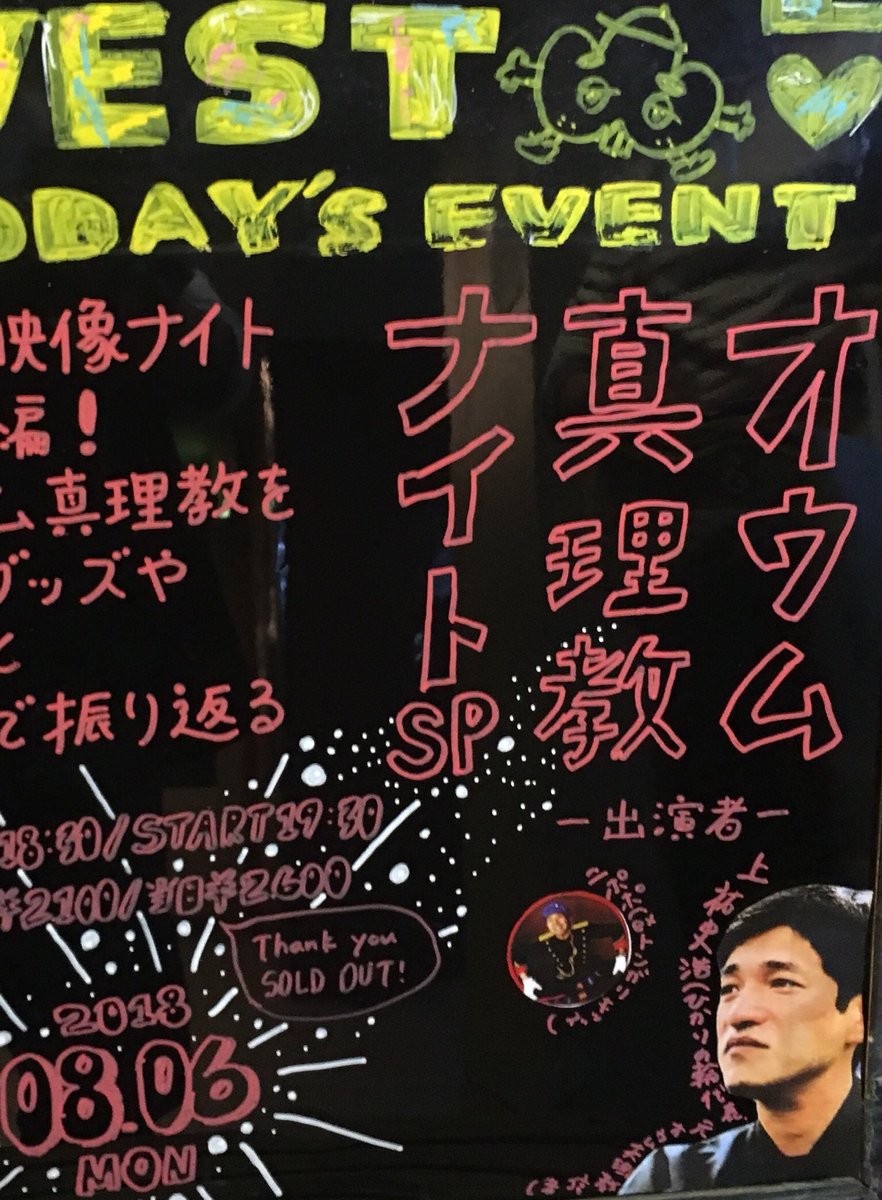 EST
ODAY'S EVENT
オウム
真理教
ナイトSP
映像ナイト
編!
ム真理教を
グッズや
と
で振り返る
18:30/START19:30
¥2100/当日¥2600
Thank you
SOLD OUT!
2018
08.06
MON
ー出演者ー
上祐史浩(ひかりの輪代表